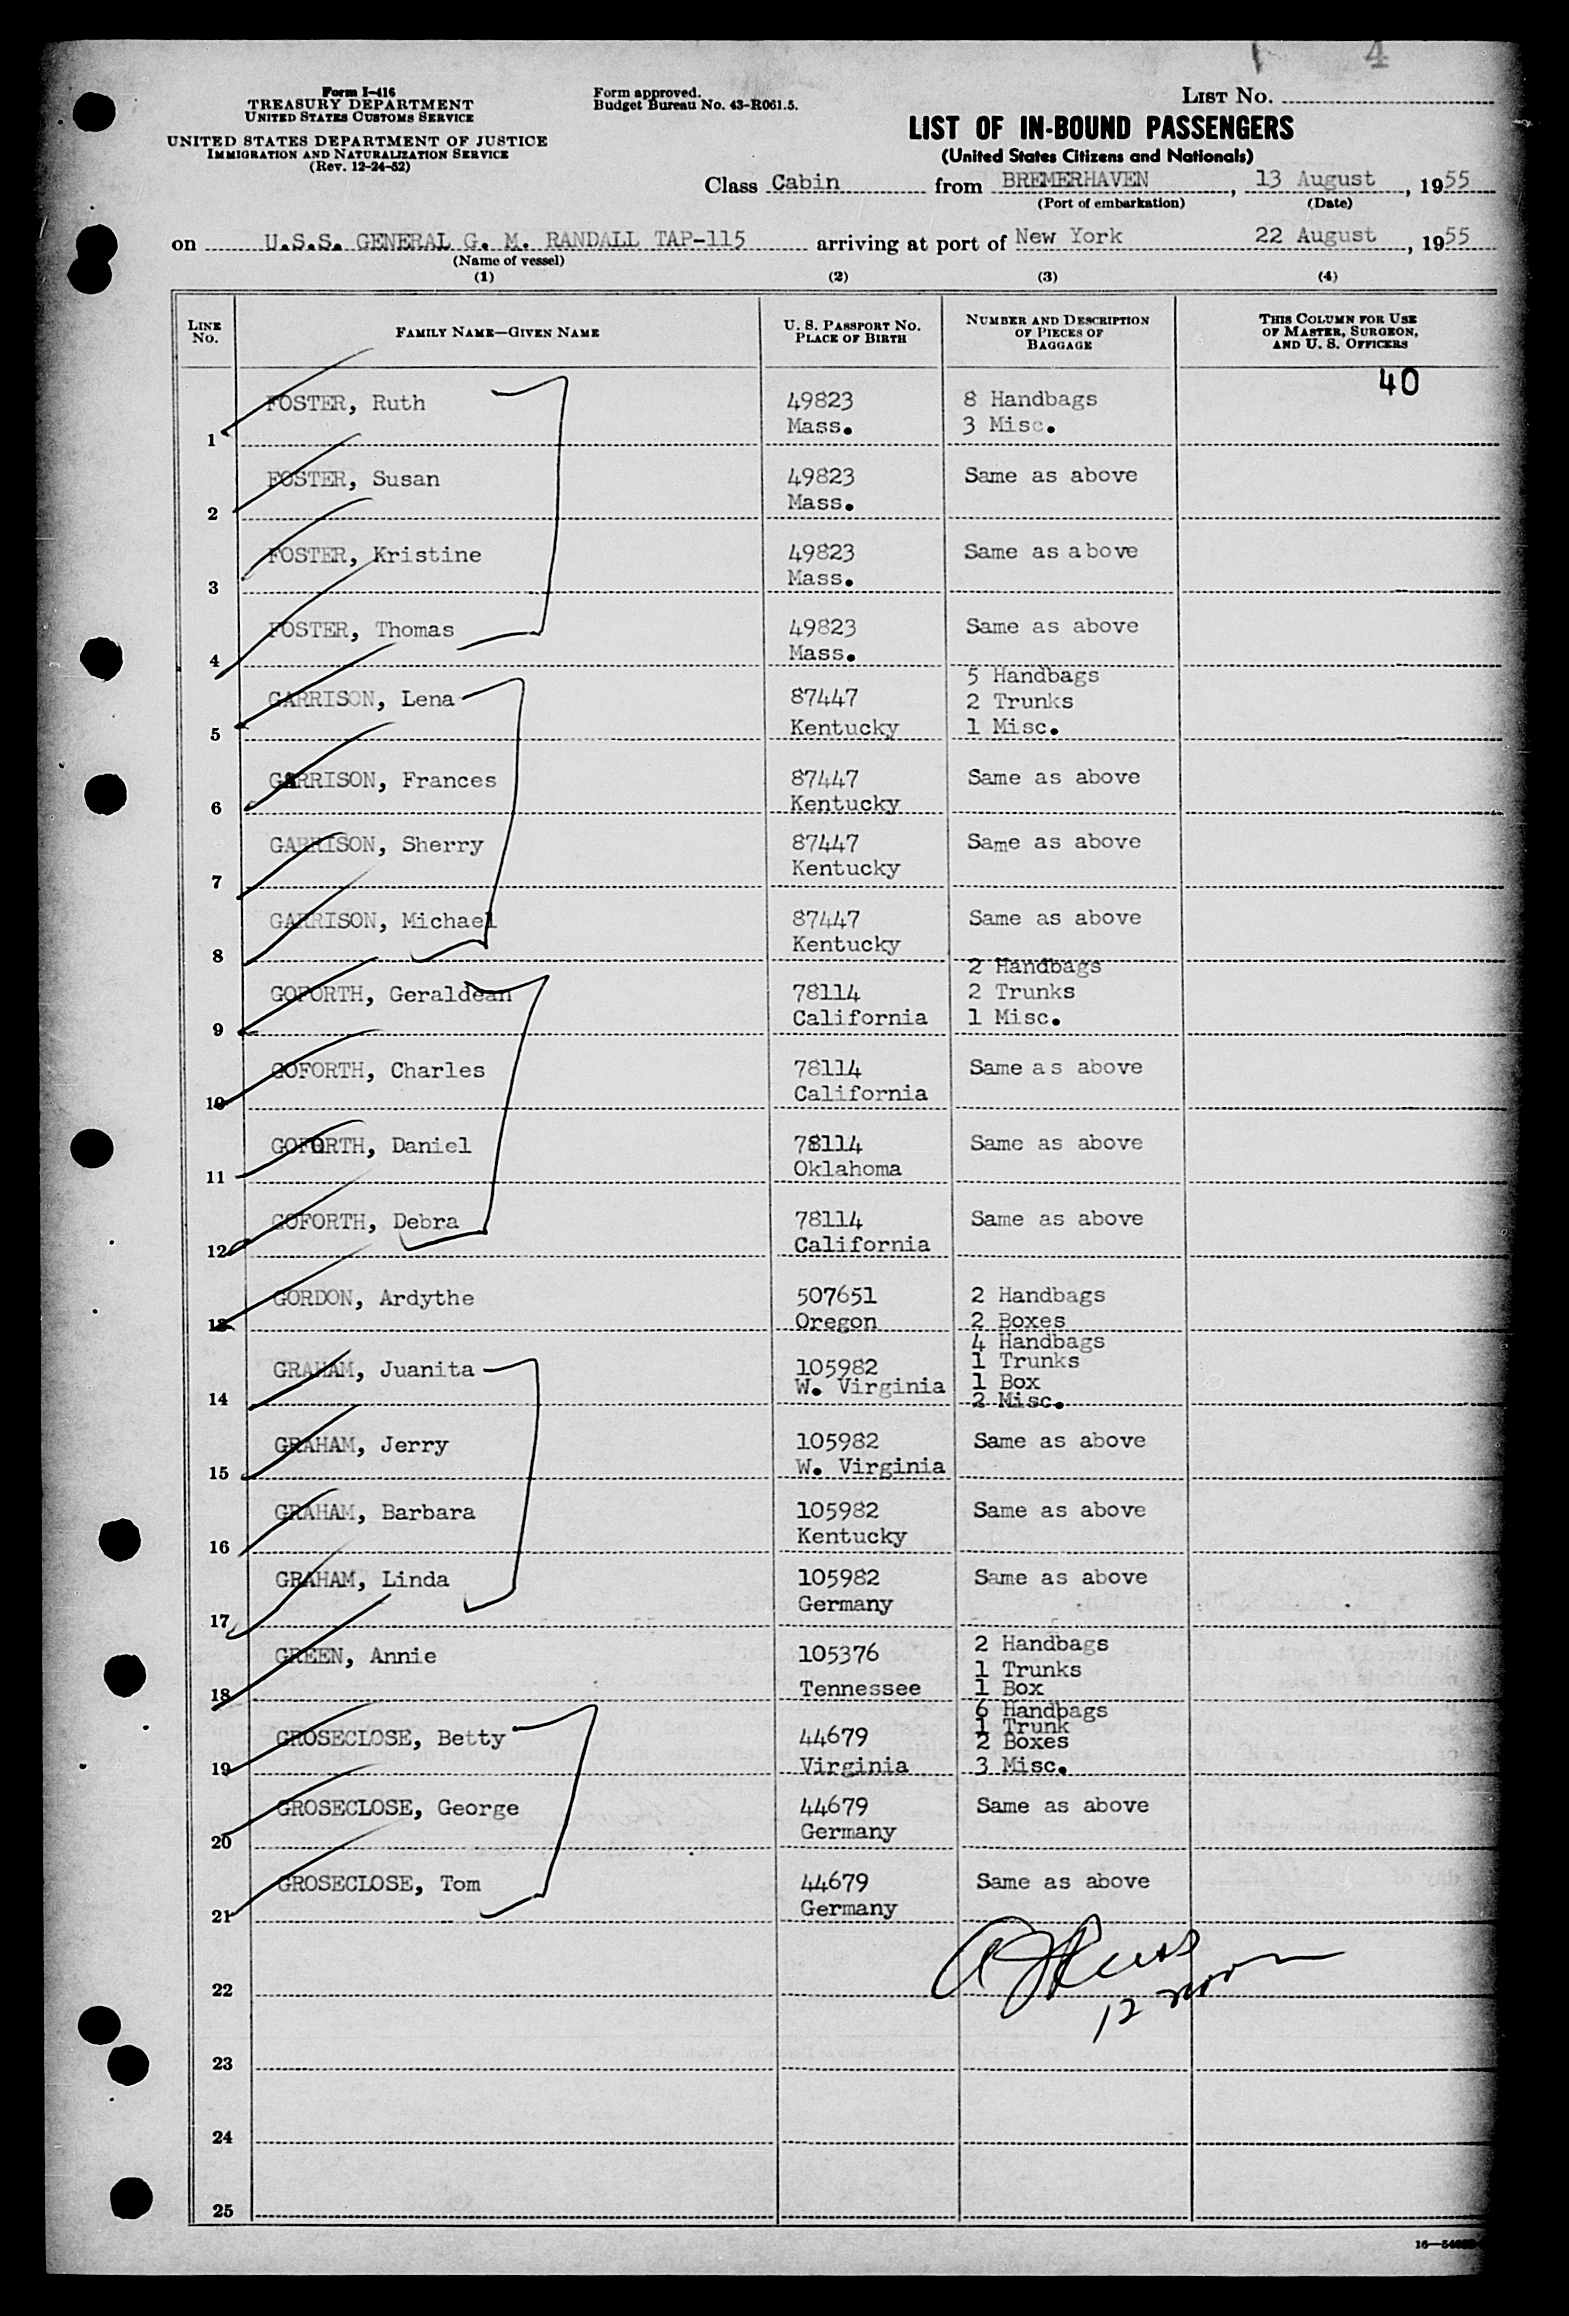 4
Form I-416
TREASURY DEPARTMENT
UNITED STATES CUSTOMS SERVICE
UNITED STATES DEPARTMENT OF JUSTICE
IMMIGRATION AND NATURALIZATION SERVICE
(Rev. 12-24-52)
Form approved.
Budget Bureau No. 43-R061.5.
LIST NO.
LIST OF IN-BOUND PASSENGERS
(United States Citizens and Nationals)
Class Cabin from BREMERHAVEN, 13 August, 1955
(Port of embarkation) (Date)
on U.S.S. GENERAL G. M. RANDALL TAP-115 arriving at port of New York 22 August, 1955
(Name of vessel)
(1) (2) (3) (4)
LINE NO. FAMILY NAME—GIVEN NAME U. S. PASSPORT NO. PLACE OF BIRTH NUMBER AND DESCRIPTION OF PIECES OF BAGGAGE THIS COLUMN FOR USE OF MASTER, SURGEON, AND U. S. OFFICERS
40
FOSTER, Ruth 49823 8 Handbags
1 Mass. 3 Misc.
FOSTER, Susan 49823 Same as above
2 Mass.
FOSTER, Kristine 49823 Same as above
3 Mass.
FOSTER, Thomas 49823 Same as above
4 Mass.
5 Handbags
GARRISON, Lena 87447 2 Trunks
5 Kentucky 1 Misc.
GARRISON, Frances 87447 Same as above
6 Kentucky
GARRISON, Sherry 87447 Same as above
7 Kentucky
GARRISON, Michael 87447 Same as above
8 Kentucky
2 Handbags
GOFORTH, Geraldean 78114 2 Trunks
9 California 1 Misc.
GOFORTH, Charles 78114 Same as above
10 California
GOFORTH, Daniel 78114 Same as above
11 Oklahoma
GOFORTH, Debra 78114 Same as above
12 California
GORDON, Ardythe 507651 2 Handbags
13 Oregon 2 Boxes
4 Handbags
GRAHAM, Juanita 105982 1 Trunks
W. Virginia 1 Box
14 2 Misc.
GRAHAM, Jerry 105982 Same as above
15 W. Virginia
GRAHAM, Barbara 105982 Same as above
16 Kentucky
GRAHAM, Linda 105982 Same as above
17 Germany
GREEN, Annie 105376 2 Handbags
1 Trunks
18 Tennessee 1 Box
6 Handbags
1 Trunk
GROSECLOSE, Betty 44679 2 Boxes
19 Virginia 3 Misc.
GROSECLOSE, George 44679 Same as above
20 Germany
GROSECLOSE, Tom 44679 Same as above
21 Germany
22
12 noon
23
24
25